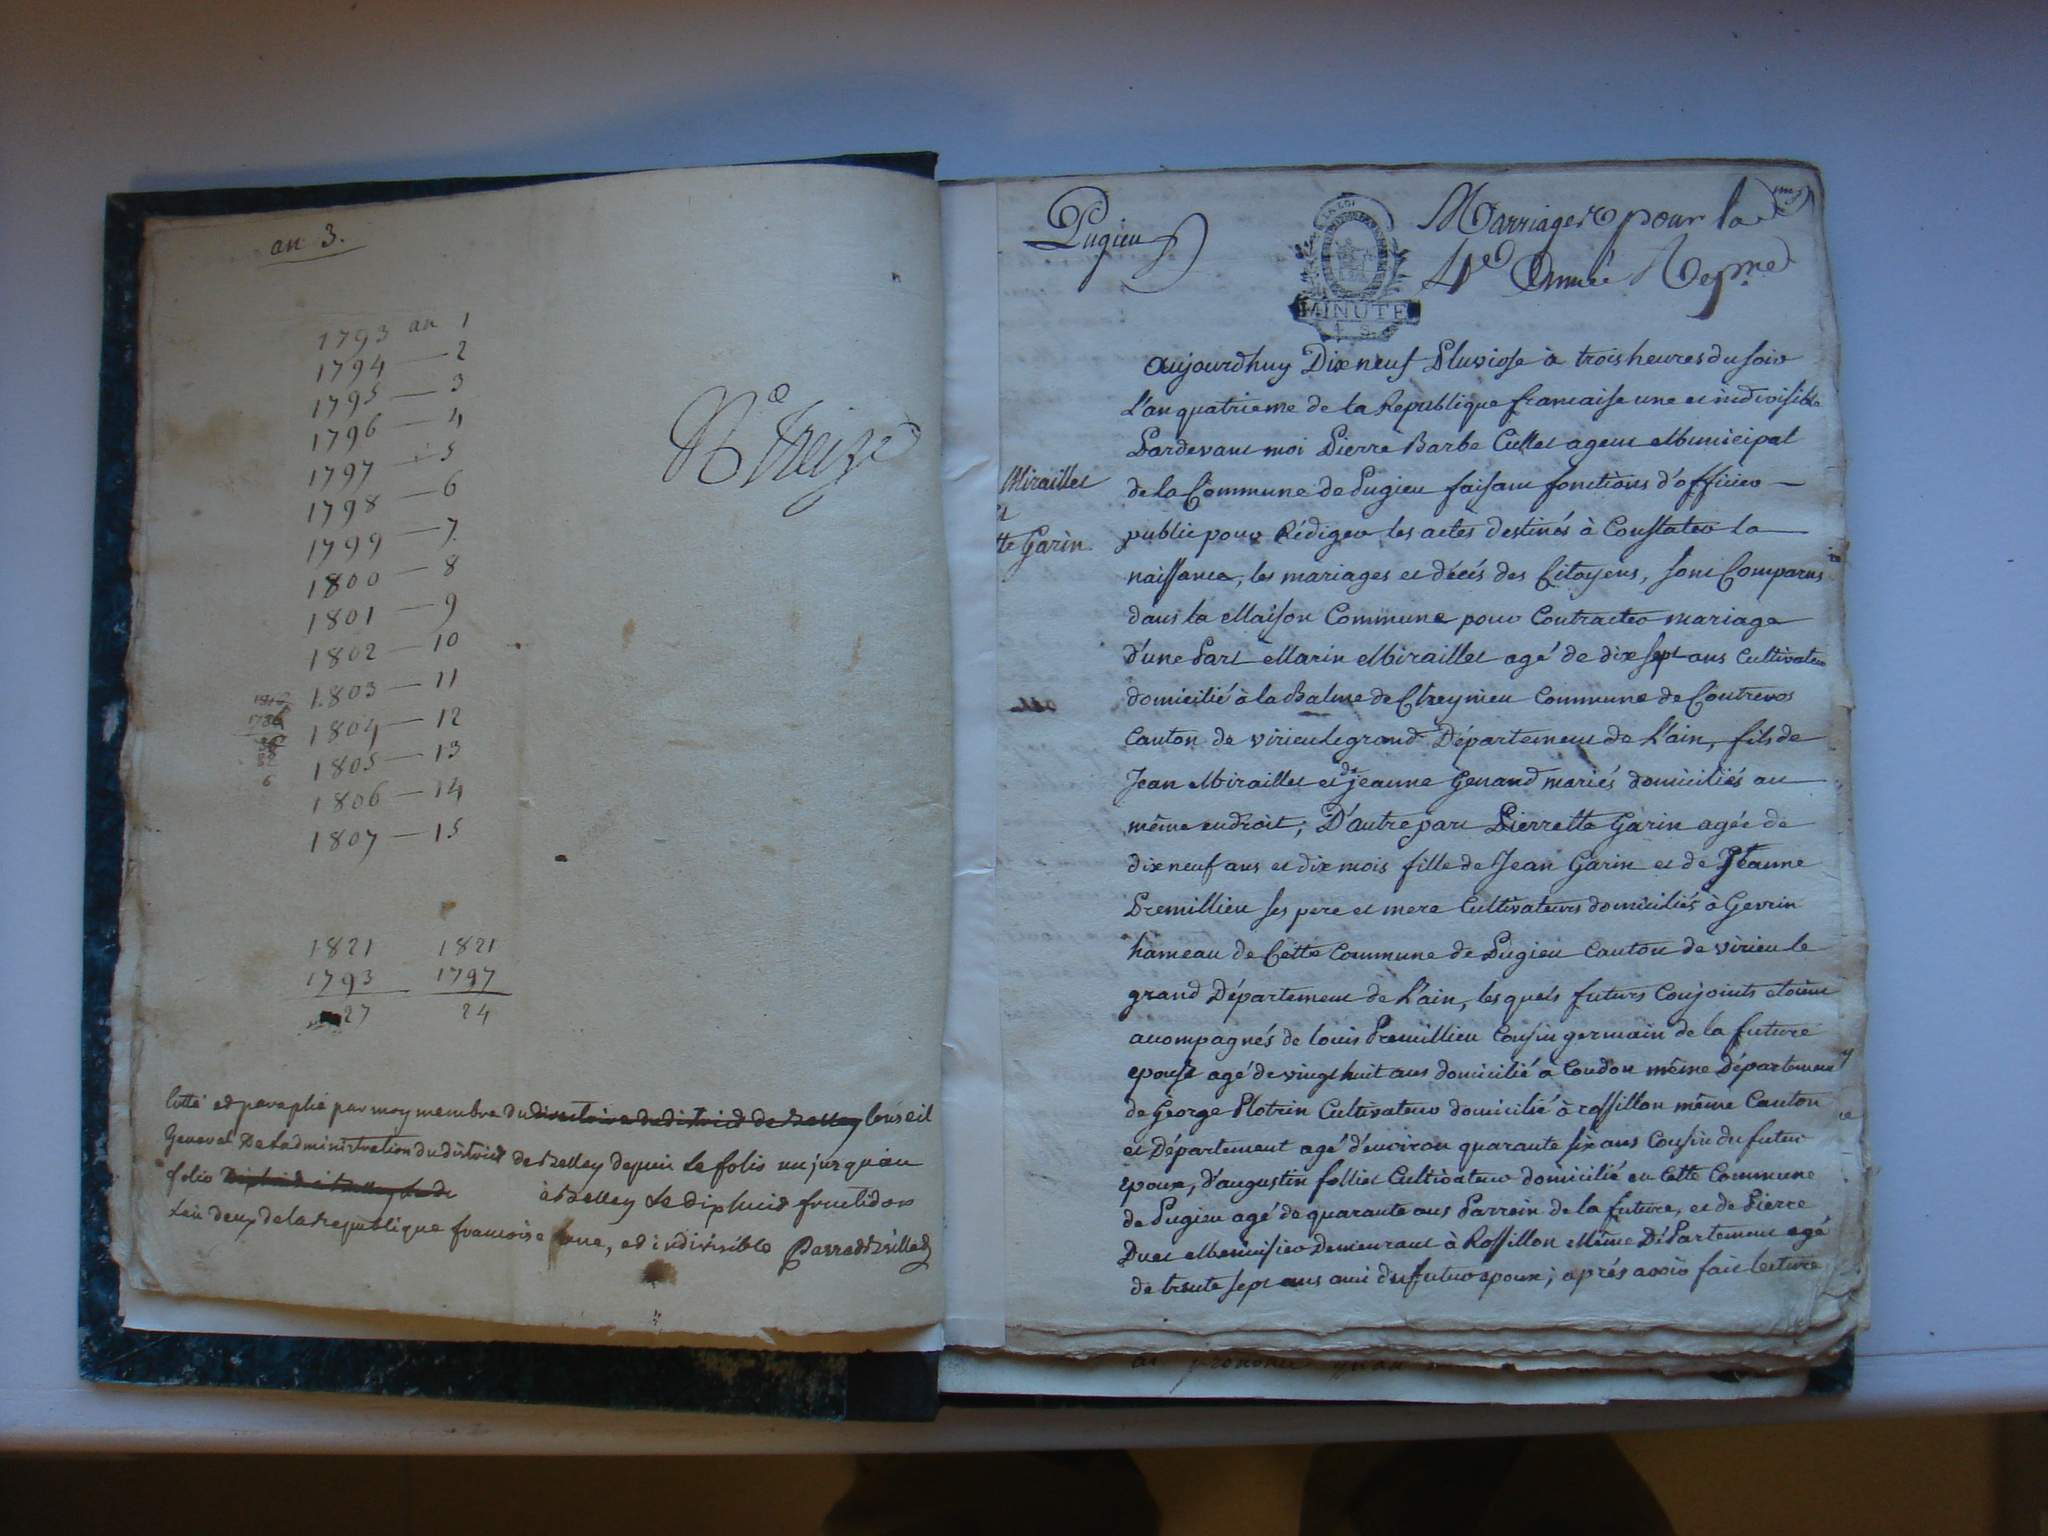 an 3.
1793 an 1
1794 — 2
1795 — 3
1796 — 4
1797 — 5
1798 — 6
1799 — 7
1800 — 8
1801 — 9
1802 — 10
1803 — 11
1804 — 12
1805 — 13
1806 — 14
1807 — 15
1821 1821
1793 1797
27 24
N° treize
Cotté et paraphé par moy membre du directoire du district de Belley Conseil
General De Ladministration du district de Belley depuis le folio un jusquau
folio à Belley Le dixhuit fructidor
Lan deux de la republique francoise une, et indivisible
Pugieu
LA LOI
MINUTE
4 S.
Marriages pour la
4e Année Rep.ne
Miraillet
et
tte Garin
aujourdhuy Dix neuf Pluviose à trois heures du soir
L'an quatrieme de la Republique francaise une et indivisible
Pardevant moi Pierre Barbe Cullet agent Municipal
de la Commune de Pugieu faisant fonctions d'officier —
public pour Rédiger les actes destinés à Constater la —
naissance, les mariages et décés des Citoyens, sont Comparus
dans la Maison Commune pour Contracter mariage
d'une Part Marin Miraillet agé de dix sept ans Cultivateur
domicilié à la Balme de Cheymieu Commune de Contrevos
Canton de virieulegrand Département de L'ain, fils de
Jean Miraillet et de jeanne Genand mariés domiciliés au
même endroit; D'autre part Pierrette Garin agée de
dix neuf ans et dix mois fille de Jean Garin et de Jeanne
Premillieu ses pere et mere Cultivateurs domiciliés à Gevrin
hameau de Cette Commune de Pugieu Canton de virieu le
grand Département de L'ain, les quels futurs Conjoints etoient
acompagnés de louis Premillieu Cousin germain de la future
epouse agé de vingt huit ans domicilié à Condon même Département
de George Plotrin Cultivateur domicilié à rossillon même Canton
et Département agé d'environ quarante six ans Cousin du futur
epoux, d'augustin folliet Cultivateur domicilié en Cette Commune
de Pugieu agé de quarante ans Parrein de la future, et de Pierre
Duet Menuisier demeurant à Rossillon Même Département agé
de trente sept ans ami du futur epoux; aprés avoir fait lecture